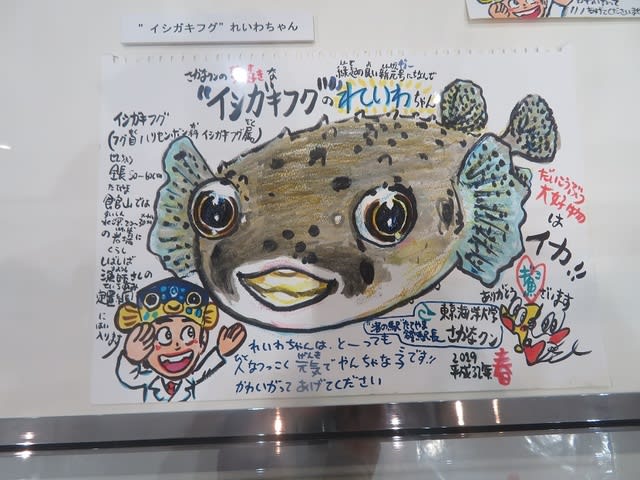 “イシガキフグ”れいわちゃん
さかなクンの大好きな
縁起の良い新元号にちなんで
“イシガキフグ”の れいわちゃん
イシガキフグ
(フグ目ハリセンボン科イシガキフグ属)
全長50〜60cm
館山では
の岩礁に
くらし
しばしば
漁師さんの
定置網
にはいります
だいこうぶつ
大好物
は
イカ!!
ありがとうございます
海の駅だてやま
東京海洋大学
さかなクン
2019
平成31年 春
れいわちゃんは、とーっても
人なつっこく元気でやんちゃなう
かわいがってあげてください